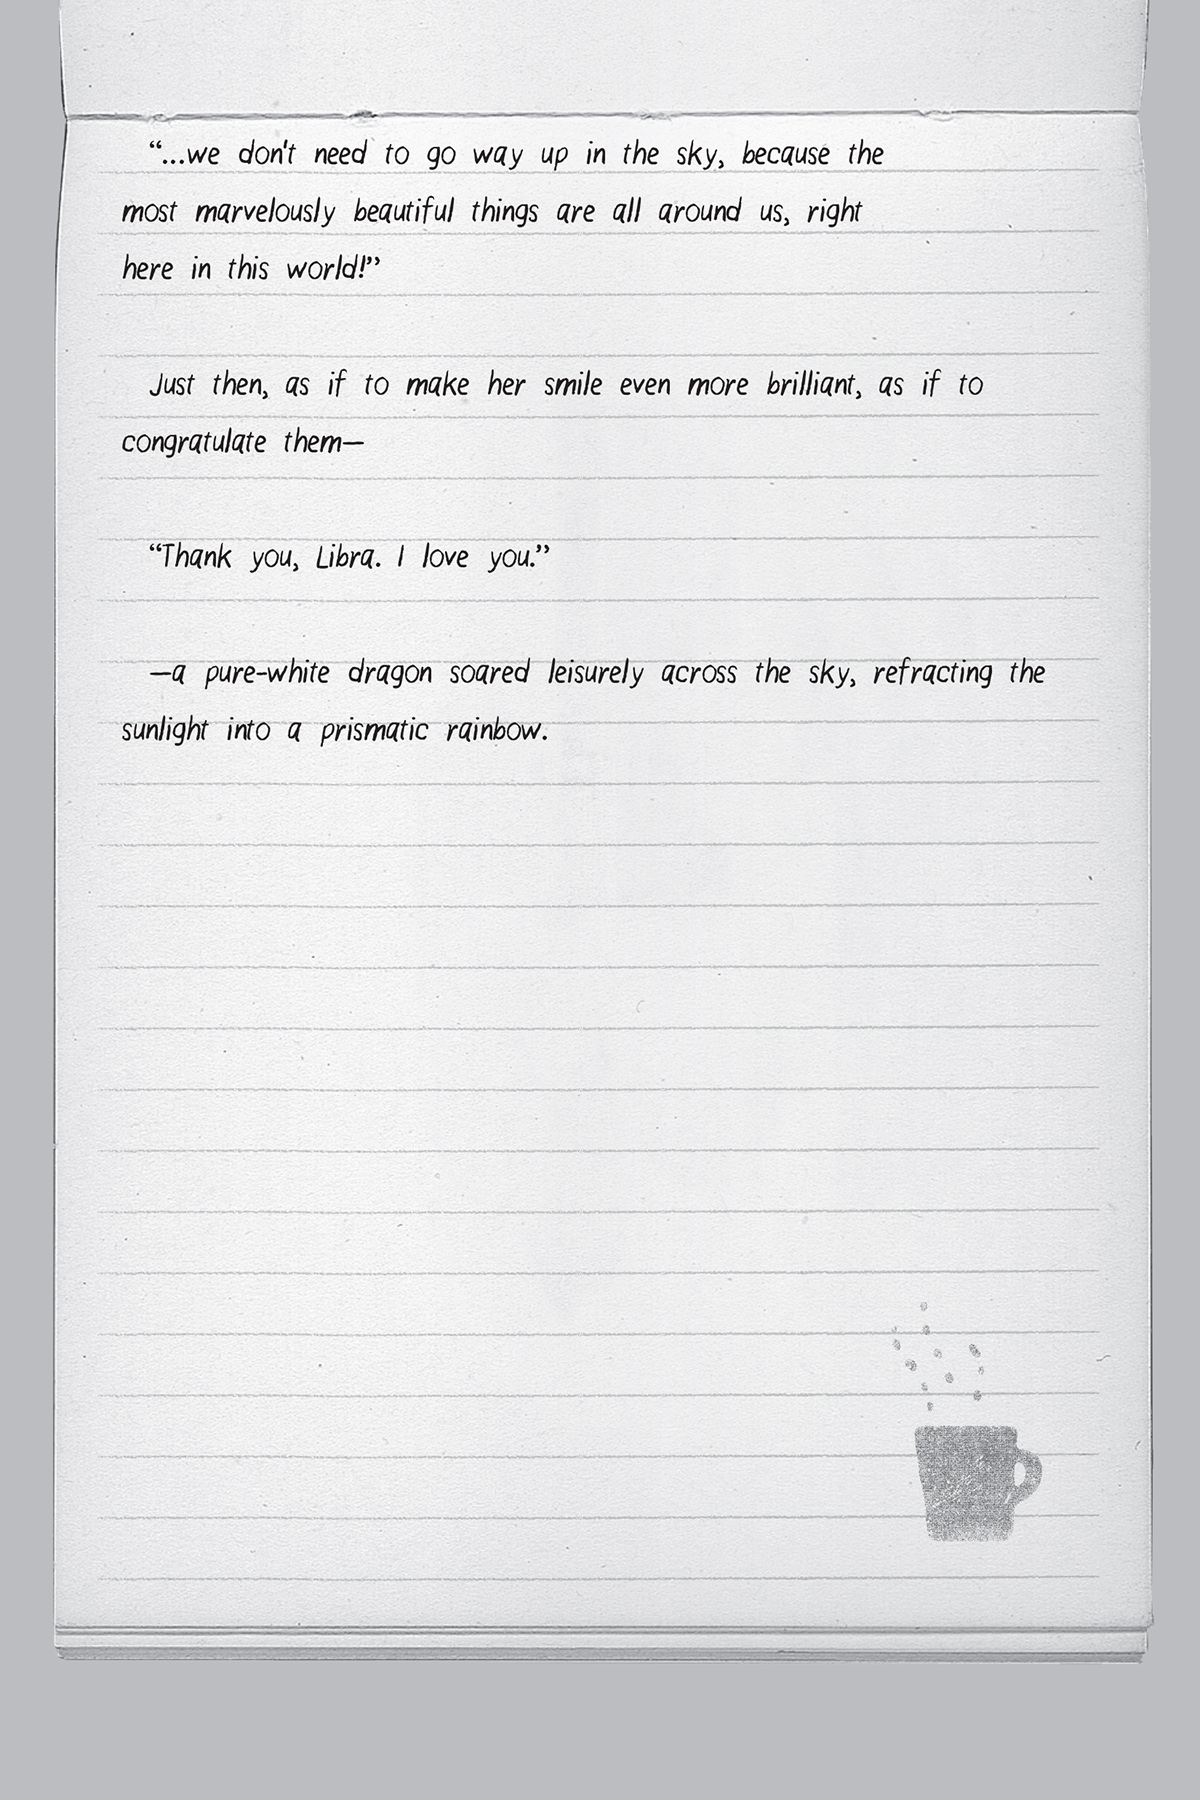 “...we don't need to go way up in the sky, because the
most marvelously beautiful things are all around us, right
here in this world!”
Just then, as if to make her smile even more brilliant, as if to
congratulate them—
“Thank you, Libra. I love you.”
—a pure-white dragon soared leisurely across the sky, refracting the
sunlight into a prismatic rainbow.